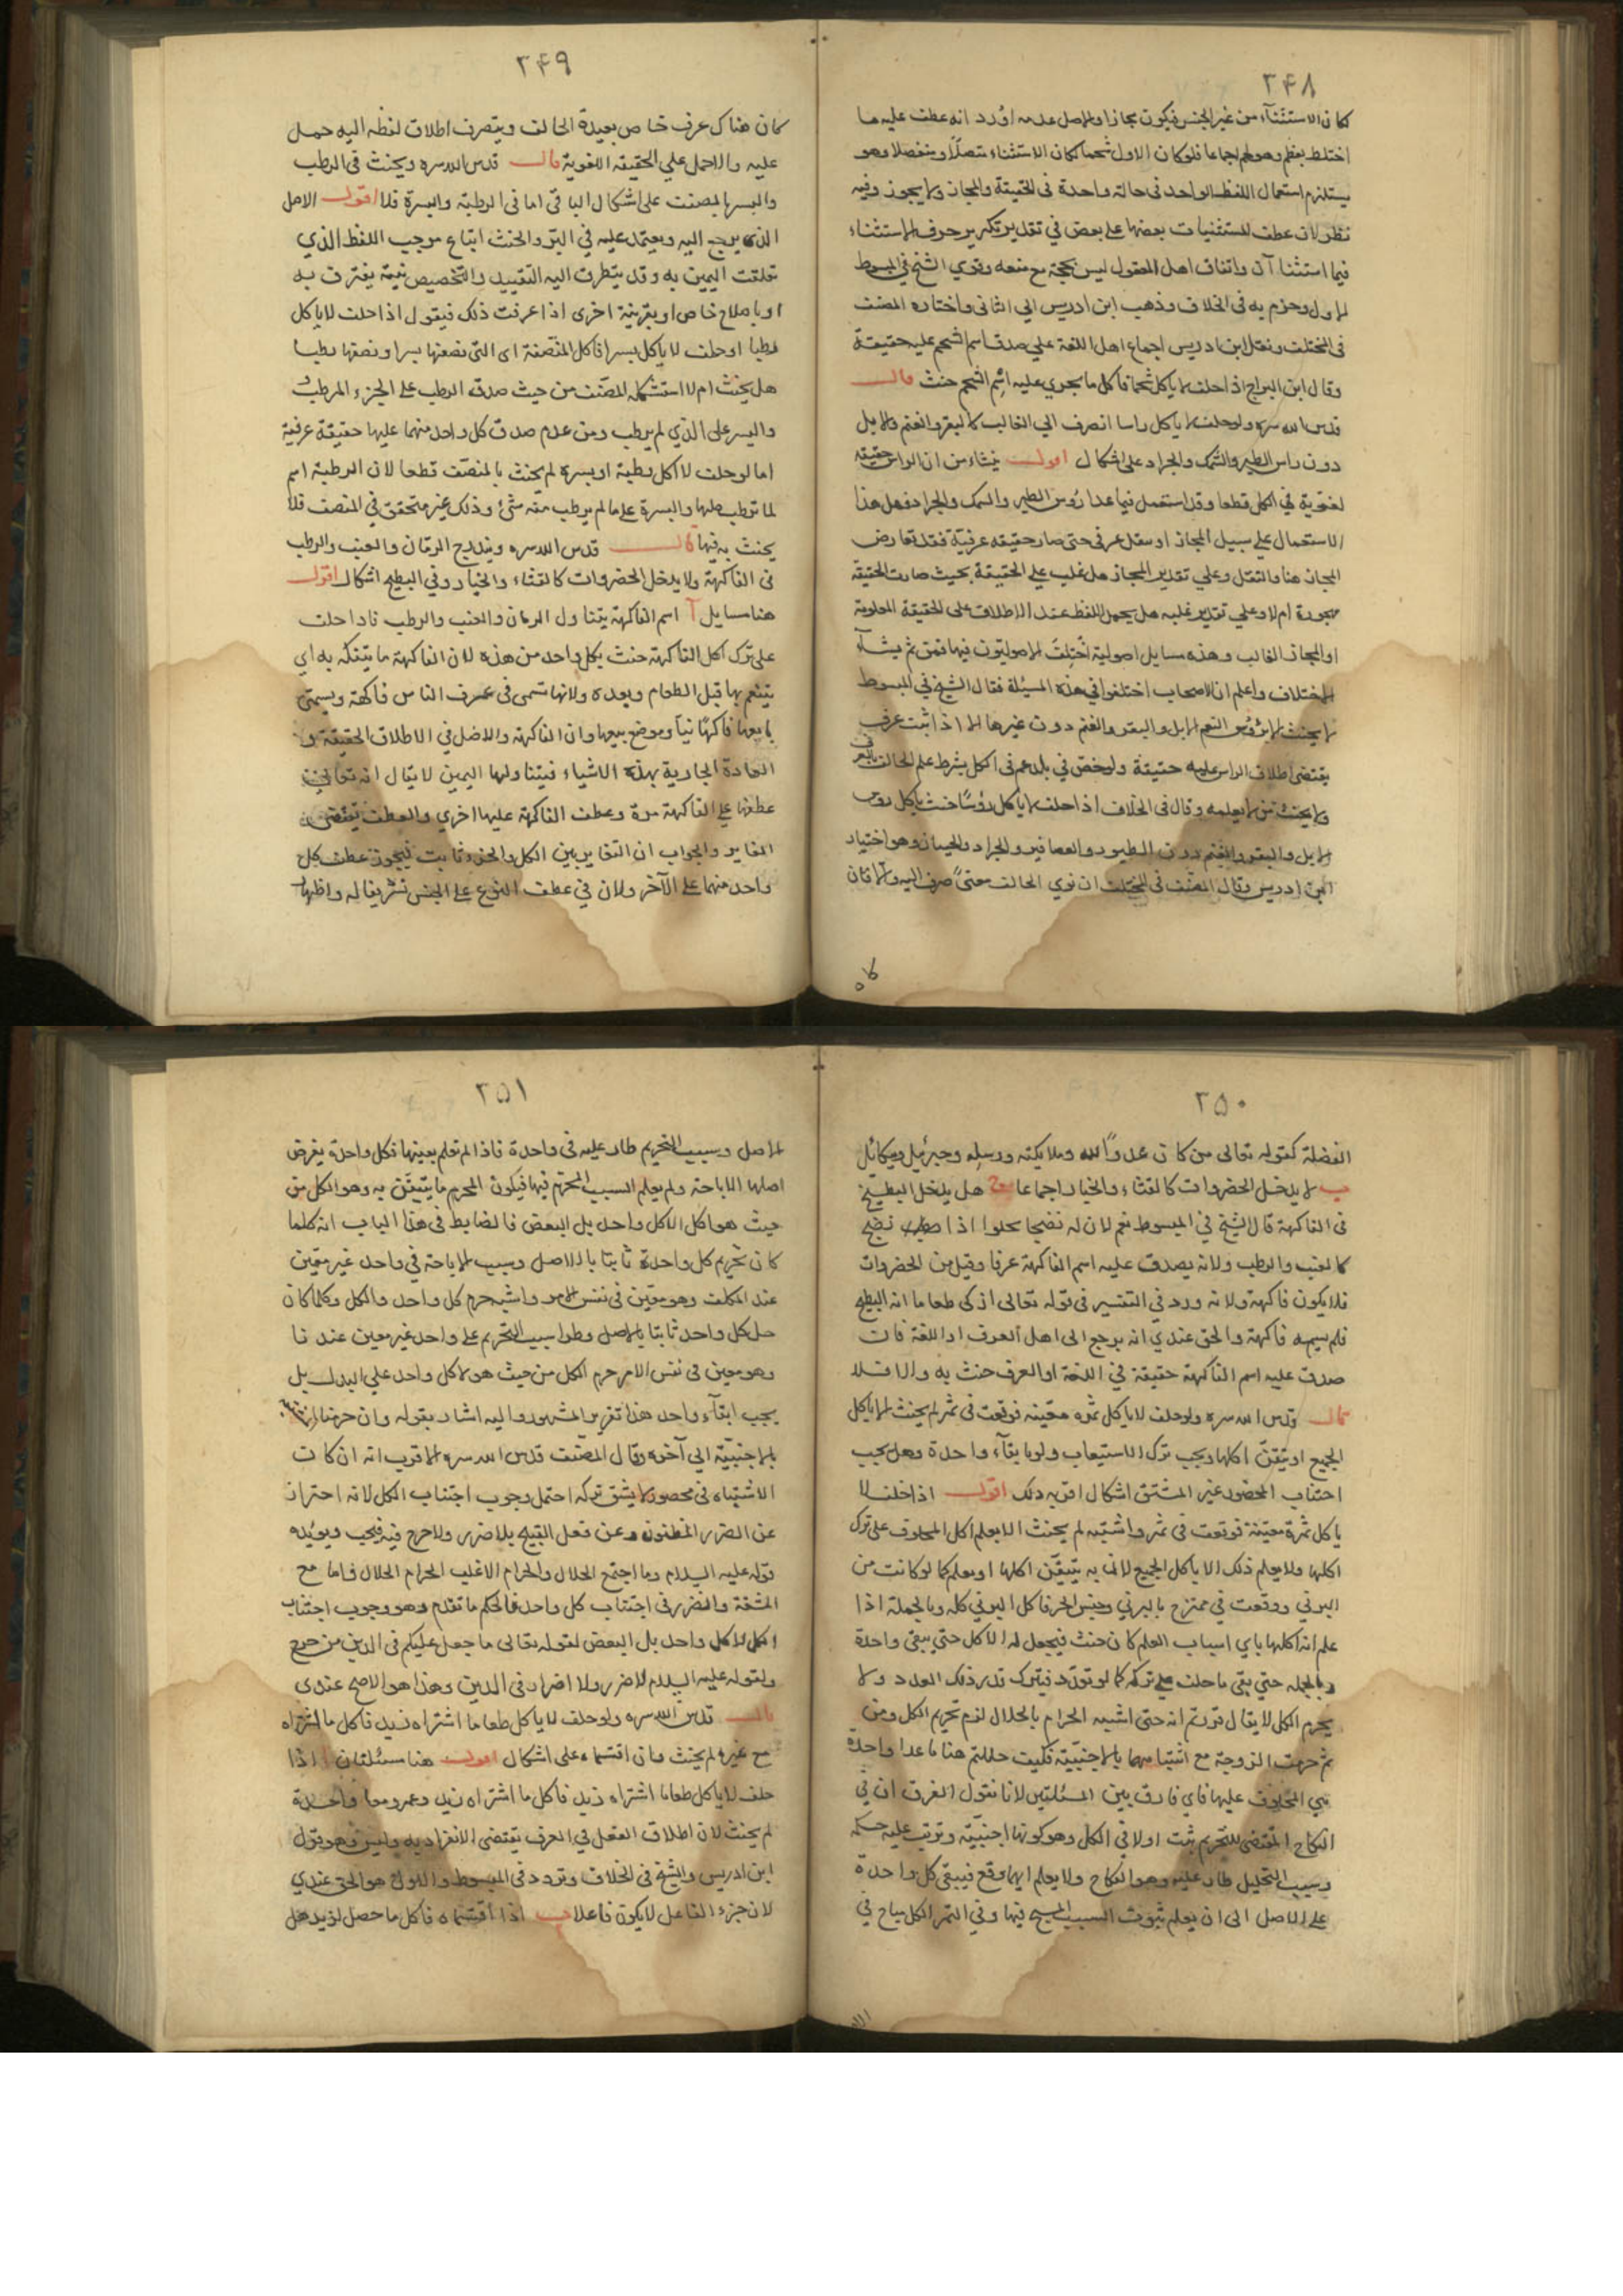 ٢۴٨
كان الاستثناء من غير الجنس فيكون مجازا والاصل عدمه اورد انه عطف عليه ما
اختلط بعظم وهو لحم اجماعا فلو كان الاول شحما لكان الاستثناء متصلا ومنفصلا وهو
يستلزم استعمال اللفظ الواحد فى حالة واحدة فى الحقيقة والمجاز ولا يجوز وفيه
نظر لان عطف المستثنيات بعضها على بعض في تقدير تكرير حرف الاستثناء
فهما استثناآن واتفاق اهل المعقول ليس بحجة مع منعه وقوي الشيخ في المبسوط
الاول وجزم به فى الخلاف وذهب ابن ادريس الي الثانى واختاره المصنف
فى المختلف ونقل ابن ادريس اجماع اهل اللغة علي صدق اسم الشحم عليه حقيقة
وقال ابن البراج اذا حلف لا ياكل شحما فاكل ما يجري عليه اسم الشحم حنث قال
قدس الله سره ولو حلف لا ياكل راسا انصرف الي الغالب كالبقر والغنم والابل
دون راس الطير والسمك والجراد على اشكال اقول ينشاء من ان الراس حقيقة
لغوية في الكل قطعا وقد استعمل فيما عدا رؤس الطير والسمك والجراد فهل هذا
الاستعمال علي سبيل المجاز او نقل عرفى حتى صار حقيقه عرفية فقد تعارض
المجاز هنا والنقل وعلي تقدير المجاز هل غلب علي الحقيقة بحيث صارت الحقيقة
مهجورة ام لا وعلي تقدير غلبه هل يحمل اللفظ عند الاطلاق على الحقيقة المعلومة
او المجاز الغالب وهذه مسايل اصولية اختلف الاصوليون فيها فمن ثم ينشاء
الاختلاف واعلم ان الاصحاب اختلفوا في هذة المسئلة فقال الشيخ في المبسوط
لا يحنث الا برؤس النعم الابل والبقر والغنم دون غيرها الا اذا ثبت عرف
يقتضى اطلاق الراس عليه حقيقة ولو خص في بلدهم فى اكل بشرط علم الحالف بالعرف
ولا يحنث من لا يعلمه وقال فى الخلاف اذا حلف لا ياكل رؤسا حنث باكل رؤس
الابل والبقر والغنم دون الطيور والعصافير والجراد والحيتان وهو اختيار
ابن ادريس وقال المصنف فى المختلف ان نوي الحالف معنى صرف اليه والا فان
٢۴٩
كان هناك عرف خاص بعيدة الحالف وينصرف اطلاق لفظه اليه حمل
عليه والا حمل علي الحقيقة اللغوية قال قدس الله سره ويحنث فى الرطب
والبسر بالمصنف على اشكال الباقى اما فى الرطبة والبسرة فلا اقول الاصل
الذى يرجع اليه ويعتمد عليه في البر والحنث اتباع موجب اللفظ الذي
تعلقت اليمين به وقد يتطرق اليه التقييد والتخصيص بنية يقترن به
او باصلاح خاص او بقرينة اخرى اذا عرفت ذلك فيقول اذا حلف لا ياكل
رطبا او حلف لا ياكل بسرا فاكل المنصفة اى التى نصفها بسرا ونصفها رطبا
هل يحنث ام لا استشكله المصنف من حيث صدق الرطب على الجزء المرطب
والبسر على الذي لم يرطب ومن عدم صدق كل واحد منهما عليها حقيقة عرفية
اما لو حلف لا اكل رطبة او بسرة لم يحنث بالمنصف قطعا لان الرطبة اسم
لما ترطب كلها والبسرة على ما لم يرطب منه شئ وذلك غير متحقق في المنصف فلا
يحنث به فيها قال قدس الله سره ويندرج الرمان والعنب والرطب
فى الفاكهة ولا يدخل الخضروات كالقثاء والخيار وفي البطيخ اشكال اقول
هنا مسايل آ اسم الفاكهة يتناول الرمان والعنب والرطب فاذا حلف
على ترك اكل الفاكهة حنث بكل واحد من هذه لان الفاكهة ما يتفكه به اي
يتنعم بها قبل الطعام وبعده ولانها تسمى فى عرف الناس فاكهة ويسمى
بايعها فاكهانيا وموضع بيعها دان الفاكهة والاصل في الاطلاق الحقيقة و
العادة الجارية بهذة الاشياء فيتناولها اليمين لا يقال انه تعالى
عطفها علي الفاكهة مرة وعطف الفاكهة عليها اخري والعطف يقتضى
المغاير والجواب ان التغاير بين الكل والجزء ثابت فيجوز عطف كل
واحد منهما على الآخر ولان في عطف النوع على الجنس تشريفا له واظهارا
٢۵٠
الفضلة كقوله تعالى من كان عدوا لله وملايكته ورسله وجبرئيل وميكائل
ب لا يدخل الخضروات كالقثاء والخيار اجماعا ج هل يدخل البطيخ
فى الفاكهة قال الشيخ في المبسوط نعم لان له نضجا يحلوا اذا نضج
كالعنب والرطب ولانه يصدق عليه اسم الفاكهة عرفا وقيل من الخضروات
فلا يكون فاكهة ولانه ورد في التفسير فى قوله تعالى ازكى طعاما انه البطيخ
فلم يسمه فاكهة والحق عندي انه يرجع الى اهل العرف او اللغة فان
صدق عليه اسم الفاكهة حقيقة في اللغة او العرف حنث به والا فلا
قال قدس الله سره ولو حلف لا ياكل تمرة معينه فوقعت فى تمر لم يحنث الا باكل
الجميع او تيقن اكلها ويجب ترك الاستيعاب ولو بابقآء واحدة وهل يجب
اجتناب المحصور غير المشتق اشكال اقربه ذلك اقول اذا حلف لا
ياكل تمرة معينة فوقعت في تمر واشتبه لم يحنث الا بعلم اكل المحلوف على ترك
اكلها ولا يعلم ذلك الا باكل الجميع لان به يتيقن اكلها او يعلم كما لو كانت من
البرني ووقعت في ممتزج بالبرني وجنس اخر فاكل البرني كله وبالجملة اذا
علم انه اكلها باي اسباب العلم كان حنث فيجعل له الاكل حتي يبقى واحدة
وبالجمله حتي بقي ما حلف علي تركه كما لو تعدد فيترك قدر ذلك العدد ولا
يحرم الكل لا يقال قررتم انه حتى اشبه الحرام بالحلال لزم تحريم الكل ومن
ثم حرمت الزوجة مع اشتباهها بالاجنبية فكيف حللتم هنا ما عدا واحدة
هي المحلوف عليها فاي فارق بين المسئلتين لانا نقول الفرق ان في
النكاح المقتضى للتحريم ثبت اولا في الكل وهو كونها اجنبية وترتب عليه حكمه
وسبب التحليل طار عليه وهو النكاح ولا يعلم ايهما وقع فيبقى كل واحدة
على الاصل الى ان يعلم ثبوت السبب المبيح فيها وفي التمر الكل مباح في
٢۵١
الاصل وسبب التحريم طار عليه فى واحدة فاذا لم تعلم بعينها فكل واحدة يفرض
اصلها الاباحة ولم يعلم السبب المحرم فيها فيكون المحرم ما يتيقن به وهو الكل من
حيث هو اكل لا كل واحد بل البعض فالضابط فى هذا الباب انه كلما
كان تحريم كل واحدة ثابتا بالاصل وسبب الاباحة في واحد غير متعين
عند المكلف وهو معين فى نفس الامر واشتبه حرم كل واحد والكل وكلما كان
حل كل واحد ثابتا بالاصل وطرا سبب التحريم على واحد غير معين عندنا
وهو معين فى نفس الامر حرم الكل من حيث هو لا كل واحد علي البدل بل
يجب ابقآء واحد هذا تقرير المشهور واليه اشار بقوله وان حرمنا
بالاجنبية الي آخره وقال المصنف قدس الله سره الاقرب انه ان كان
الاشتباه فى محصور لا يشق تركه احتمل وجوب اجتناب الكل لانه احتراز
عن الضرر المظنون وعن فعل القبيح بلا ضرر ولا حرج فيه فيجب ويؤيده
قوله عليه السلام وما اجتمع الحلال والحرام الا غلب الحرام الحلال فاما مع
المشقة والضرر فى اجتناب كل واحد فالحكم ما تقدم وهو وجوب اجتناب
الكل لا كل واحد بل البعض لقوله تعالى ما جعل عليكم فى الدين من حرج
ولقوله عليه السلام لا ضرر ولا اضرار فى الدين وهذا هو الاصح عندى
قال قدس الله سره ولو حلف لا ياكل طعاما اشتراه زيد فاكل ما اشتراه
مع غيره لم يحنث وان اقتسماه على اشكال اقول هنا مسئلتان ا اذا
حلف لا ياكل طعاما اشتراه زيد فاكل ما اشتراه زيد وعمرو معا واحدة
لم يحنث لان اطلاق الفعل في العرف يقتضى الانفراد به وليس وهو قول
ابن ادريس والشيخ فى الخلاف وتردد فى المبسوط والاول هو الحق عندي
لان جزء الفاعل لا يكون فاعلا ب اذا اقتسماه فاكل ما حصل لزيد هل